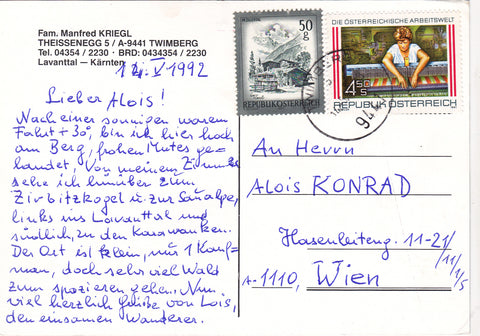 Fam. Manfred KRIEGL
THEISSENEGG 5 / A-9441 TWIMBERG
Tel. 04354 / 2230 - BRD: 0434354 / 2230
Lavanttal — Kärnten
1992
Lieber Alois!
Nach einer sonnigen warmen
Fahrt +30°, bin ich hier hoch
am Berg, frohen Mutes ge-
landet, Von meinem Zimmer
sehe ich hinüber zum
Zirbitzkogel u. zur Saualpe,
links ins Lavanttal und
südlich, zu den Karawanken.
Der Ort ist klein, nur 1 Kauf-
man, doch sehr viel Wald
zum spazieren gehen. Nun
viel herzlich Grüße von Lois,
den einsamen Wanderer.
50
g
REPUBLIK ÖSTERREICH
DIE ÖSTERREICHISCHE ARBEITSWELT
4.50
S
REPUBLIK ÖSTERREICH
An Herrn
Alois KONRAD
Hasenleiteng. 11-21/
11/1/5
A-1110, Wien